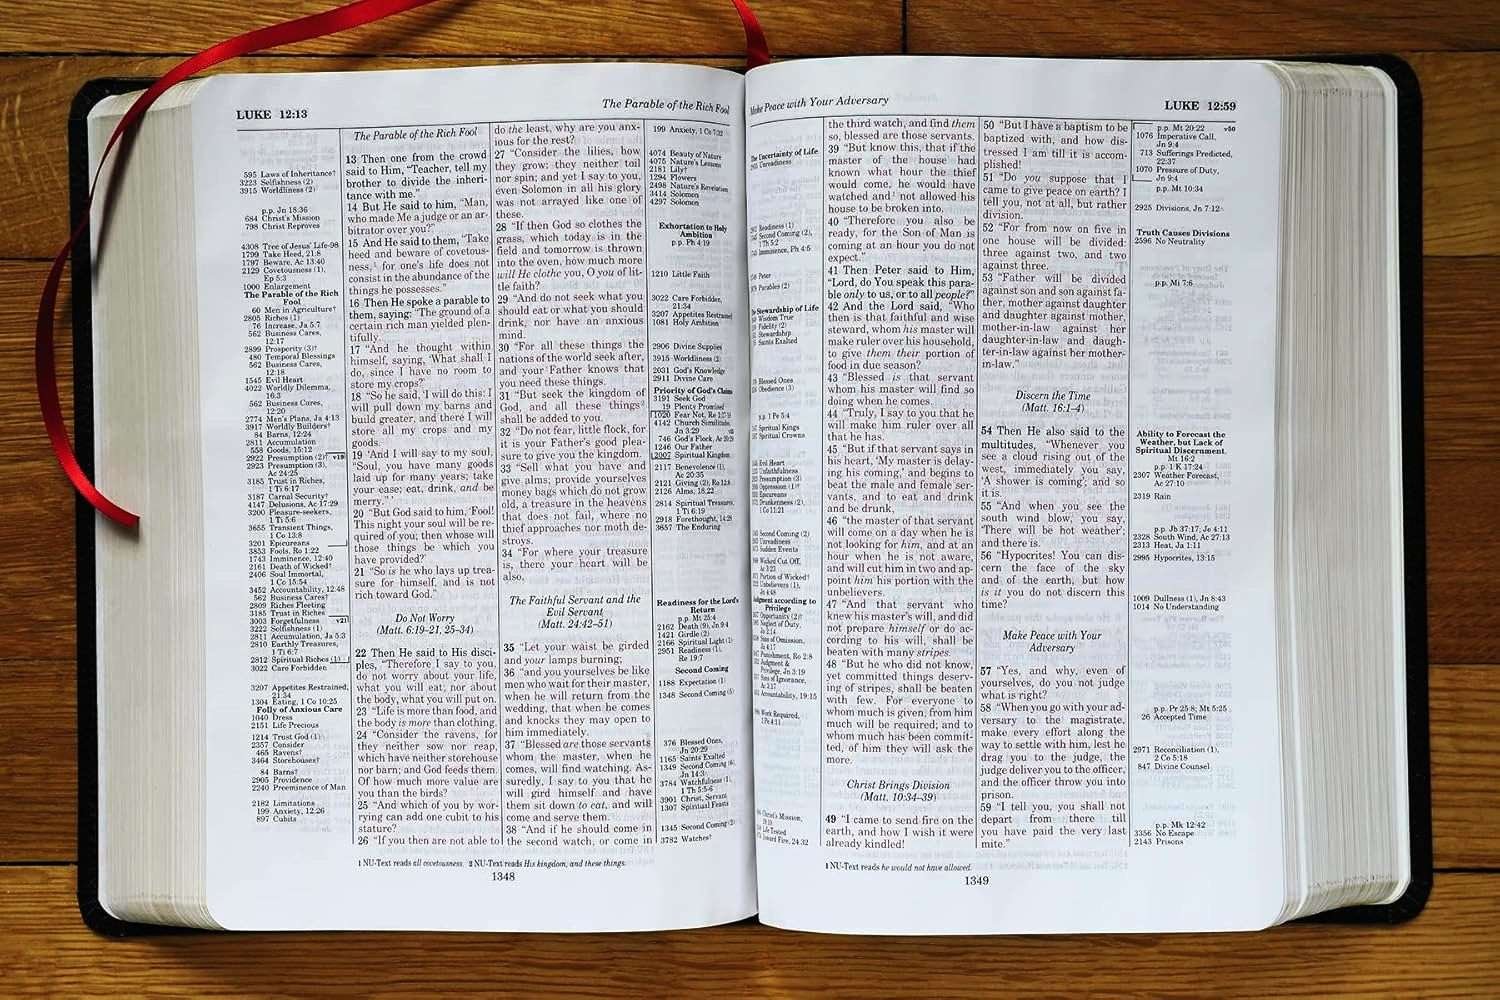 LUKE 12:13
The Parable of the Rich Fool
595 Laws of Inheritance†
3223 Selfishness (2)
3915 Worldliness (2)
p.p. Jn 18:36
684 Christ's Mission
798 Christ Reproves
4308 Tree of Jesus' Life-98
1799 Take Heed, 21:8
1797 Beware, Ac 13:40
2129 Covetousness (1),
Ep 5:3
1000 Enlargement
The Parable of the Rich
Fool
60 Men in Agriculture†
2805 Riches (1)
76 Increase, Ja 5:7
562 Business Cares,
12:17
2899 Prosperity (3)†
480 Temporal Blessings
562 Business Cares,
12:18
1545 Evil Heart
4022 Worldly Dilemma,
16:3
562 Business Cares,
12:20
2774 Men's Plans, Ja 4:13
3917 Worldly Builders†
84 Barns, 12:24
2811 Accumulation
558 Goods, 15:12
2922 Presumption (2)† v19
2923 Presumption (3),
Ac 24:25
3185 Trust in Riches,
1 Ti 6:17
3187 Carnal Security†
4147 Delusions, Ac 17:29
3200 Pleasure-seekers,
1 Ti 5:6
3655 Transient Things,
1 Co 13:8
3201 Epicureans
3853 Fools, Ro 1:22
1743 Imminence, 12:40
2161 Death of Wicked†
2406 Soul Immortal,
1 Co 15:54
3452 Accountability, 12:48
562 Business Cares†
2809 Riches Fleeting
3185 Trust in Riches
3003 Forgetfulness v21
3222 Selfishness (1)
2811 Accumulation, Ja 5:3
2810 Earthly Treasures,
1 Ti 6:7
2812 Spiritual Riches (1)
3022 Care Forbidden
3207 Appetites Restrained,
21:34
1304 Eating, 1 Co 10:25
Folly of Anxious Care
1040 Dress
2151 Life Precious
1214 Trust God (1)
2357 Consider
465 Ravens†
3464 Storehouses†
84 Barns†
2905 Providence
2240 Preeminence of Man
2182 Limitations
199 Anxiety, 12:26
897 Cubits
The Parable of the Rich Fool
13 Then one from the crowd
said to Him, "Teacher, tell my
brother to divide the inheri-
tance with me."
14 But He said to him, "Man,
who made Me a judge or an ar-
bitrator over you?"
15 And He said to them, "Take
heed and beware of covetous-
ness,¹ for one's life does not
consist in the abundance of the
things he possesses."
16 Then He spoke a parable to
them, saying: "The ground of a
certain rich man yielded plen-
tifully.
17 "And he thought within
himself, saying, 'What shall I
do, since I have no room to
store my crops?'
18 "So he said, 'I will do this: I
will pull down my barns and
build greater, and there I will
store all my crops and my
goods.
19 'And I will say to my soul,
"Soul, you have many goods
laid up for many years; take
your ease; eat, drink, and be
merry." '
20 "But God said to him, 'Fool!
This night your soul will be re-
quired of you; then whose will
those things be which you
have provided?'
21 "So is he who lays up trea-
sure for himself, and is not
rich toward God."
Do Not Worry
(Matt. 6:19–21, 25–34)
22 Then He said to His disci-
ples, "Therefore I say to you,
do not worry about your life,
what you will eat; nor about
the body, what you will put on.
23 "Life is more than food, and
the body is more than clothing.
24 "Consider the ravens, for
they neither sow nor reap,
which have neither storehouse
nor barn; and God feeds them.
Of how much more value are
you than the birds?
25 "And which of you by wor-
rying can add one cubit to his
stature?
26 "If you then are not able to
do the least, why are you anx-
ious for the rest?
27 "Consider the lilies, how
they grow: they neither toil
nor spin; and yet I say to you,
even Solomon in all his glory
was not arrayed like one of
these.
28 "If then God so clothes the
grass, which today is in the
field and tomorrow is thrown
into the oven, how much more
will He clothe you, O you of lit-
tle faith?
29 "And do not seek what you
should eat or what you should
drink, nor have an anxious
mind.
30 "For all these things the
nations of the world seek after,
and your Father knows that
you need these things.
31 "But seek the kingdom of
God, and all these things²
shall be added to you.
32 "Do not fear, little flock, for
it is your Father's good plea-
sure to give you the kingdom.
33 "Sell what you have and
give alms; provide yourselves
money bags which do not grow
old, a treasure in the heavens
that does not fail, where no
thief approaches nor moth de-
stroys.
34 "For where your treasure
is, there your heart will be
also.
The Faithful Servant and the
Evil Servant
(Matt. 24:42–51)
35 "Let your waist be girded
and your lamps burning;
36 "and you yourselves be like
men who wait for their master,
when he will return from the
wedding, that when he comes
and knocks they may open to
him immediately.
37 "Blessed are those servants
whom the master, when he
comes, will find watching. As-
suredly, I say to you that he
will gird himself and have
them sit down to eat, and will
come and serve them.
38 "And if he should come in
the second watch, or come in
199 Anxiety, 1 Co 7:32
4074 Beauty of Nature
4075 Nature's Lessons
2181 Lily†
1294 Flowers
2498 Nature's Revelation
3414 Solomon
4297 Solomon
Exhortation to Holy
Ambition
p.p. Ph 4:19
1210 Little Faith
3022 Care Forbidden,
21:34
3207 Appetites Restrained
1081 Holy Ambition
2906 Divine Supplies
3915 Worldliness (2)
2031 God's Knowledge
2911 Divine Care
Priority of God's Claims
3191 Seek God
19 Plenty Promised
1020 Fear Not,
4142 Church Similitude,
Jn 3:29
746 God's Flock,
1246 Our Father
2007 Spiritual Kingdom
2117 Benevolence (1),
Ac 20:35
2121 Giving (2),
2126 Alms, 18:22
2814 Spiritual Treasures,
1 Ti 6:19
2918 Forethought,
3657 The Enduring
Readiness for the Lord's
Return
p.p. Mt 25:4
2162 Death (9), Jn 9:4
1421 Girdle (2)
2166 Spiritual Light (1)
2951 Readiness (1),
Re 19:7
Second Coming
1188 Expectation (1)
1348 Second Coming (5)
376 Blessed Ones,
Jn 20:29
1165 Saints Exalted
1349 Second Coming (6),
Jn 14:3
3784 Watchfulness (1),
1 Th 5:5-6
3901 Christ, Servant
1307 Spiritual Feasts
1345 Second Coming (2)
3782 Watches†
1 NU-Text reads all covetousness. 2 NU-Text reads His kingdom, and these things.
1348
Make Peace with Your Adversary
LUKE 12:59
The Uncertainty of Life
Unreadiness
Readiness (1)
Second Coming (2),
1 Th 5:2
Imminence, Ph 4:5
Peter
Parables (2)
Stewardship of Life
Wisdom True
Fidelity (2)
Stewardship
Saints Exalted
Blessed Ones
Obedience (3)
p.p. 1 Pe 5:4
Spiritual Kings
Spiritual Crowns
Evil Heart
Unfaithfulness
Presumption (3)
Oppression (1)†
Epicureans
Drunkenness (2),
1 Co 11:21
Second Coming (2)
Unreadiness
Sudden Events
Wicked Cut Off,
Portion of Wicked†
Unbelievers (1),
Jn 4:48
Judgment according to
Privilege
Opportunity (2)†
Neglect of Duty,
Sins of Omission,
Punishment, Ro 2:8
Judgment &
Privilege, Jn 3:19
Sins of Ignorance,
Accountability, 19:15
Work Required,
Christ's Mission,
Life Tested
Fire, 24:32
the third watch, and find them
so, blessed are those servants.
39 "But know this, that if the
master of the house had
known what hour the thief
would come, he would have
watched and¹ not allowed his
house to be broken into.
40 "Therefore you also be
ready, for the Son of Man is
coming at an hour you do not
expect."
41 Then Peter said to Him,
"Lord, do You speak this para-
ble only to us, or to all people?"
42 And the Lord said, "Who
then is that faithful and wise
steward, whom his master will
make ruler over his household,
to give them their portion of
food in due season?
43 "Blessed is that servant
whom his master will find so
doing when he comes.
44 "Truly, I say to you that he
will make him ruler over all
that he has.
45 "But if that servant says in
his heart, 'My master is delay-
ing his coming,' and begins to
beat the male and female ser-
vants, and to eat and drink
and be drunk,
46 "the master of that servant
will come on a day when he is
not looking for him, and at an
hour when he is not aware,
and will cut him in two and ap-
point him his portion with the
unbelievers.
47 "And that servant who
knew his master's will, and did
not prepare himself or do ac-
cording to his will, shall be
beaten with many stripes.
48 "But he who did not know,
yet committed things deserv-
ing of stripes, shall be beaten
with few. For everyone to
whom much is given, from him
much will be required; and to
whom much has been commit-
ted, of him they will ask the
more.
Christ Brings Division
(Matt. 10:34–39)
49 "I came to send fire on the
earth, and how I wish it were
already kindled!
50 "But I have a baptism to be
baptized with, and how dis-
tressed I am till it is accom-
plished!
51 "Do you suppose that I
came to give peace on earth? I
tell you, not at all, but rather
division.
52 "For from now on five in
one house will be divided:
three against two, and two
against three.
53 "Father will be divided
against son and son against fa-
ther, mother against daughter
and daughter against mother,
mother-in-law against her
daughter-in-law and daugh-
ter-in-law against her mother-
in-law."
Discern the Time
(Matt. 16:1–4)
54 Then He also said to the
multitudes, "Whenever you
see a cloud rising out of the
west, immediately you say,
'A shower is coming'; and so
it is.
55 "And when you see the
south wind blow, you say,
'There will be hot weather';
and there is.
56 "Hypocrites! You can dis-
cern the face of the sky
and of the earth, but how
is it you do not discern this
time?
Make Peace with Your
Adversary
57 "Yes, and why, even of
yourselves, do you not judge
what is right?
58 "When you go with your ad-
versary to the magistrate,
make every effort along the
way to settle with him, lest he
drag you to the judge, the
judge deliver you to the officer,
and the officer throw you into
prison.
59 "I tell you, you shall not
depart from there till
you have paid the very last
mite."
p.p. Mt 20:22 v50
1076 Imperative Call,
Jn 9:4
713 Sufferings Predicted,
22:37
1070 Pressure of Duty,
Jn 9:4
p.p. Mt 10:34
2925 Divisions, Jn 7:12
Truth Causes Divisions
2596 No Neutrality
p.p. Mi 7:6
Ability to Forecast the
Weather, but Lack of
Spiritual Discernment.
Mt 16:2
p.p. 1 K 17:24
2307 Weather Forecast,
Ac 27:10
2319 Rain
p.p. Jb 37:17; Je 4:11
2328 South Wind, Ac 27:13
2313 Heat, Ja 1:11
2995 Hypocrites, 13:15
1009 Dullness (1), Jn 8:43
1014 No Understanding
p.p. Pr 25:8; Mt 5:25
26 Accepted Time
2971 Reconciliation (1),
2 Co 5:18
847 Divine Counsel
p.p. Mk 12:42
3356 No Escape
2143 Prisons
1 NU-Text reads he would not have allowed.
1349